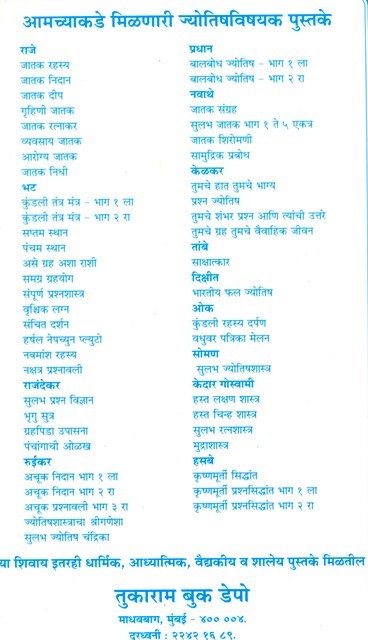 आमच्याकडे मिळणारी ज्योतिषविषयक पुस्तके
राजे
जातक रहस्य
जातक निदान
जातक दीप
गृहिणी जातक
जातक रत्नाकर
व्यवसाय जातक
आरोग्य जातक
जातक निधी
भट
कुंडली तंत्र मंत्र - भाग १ ला
कुंडली तंत्र मंत्र - भाग २ रा
सप्तम स्थान
पंचम स्थान
असे ग्रह अशा राशी
समग्र ग्रहयोग
संपूर्ण प्रश्नशास्त्र
वृश्चिक लग्न
संचित दर्शन
हर्षल नेपच्युन प्लुटो
नवमांश रहस्य
नक्षत्र प्रश्नावली
राजंदेकर
सुलभ प्रश्न विज्ञान
भृगु सुत्र
ग्रहपिडा उपासना
पंचांगाची ओळख
रुईकर
अचूक निदान भाग १ ला
अचूक निदान भाग २ रा
अचूक प्रश्नावली भाग ३ रा
ज्योतिषशास्त्राचा श्रीगणेशा
सुलभ ज्योतिष चंद्रिका
प्रधान
बालबोध ज्योतिष - भाग १ ला
बालबोध ज्योतिष - भाग २ रा
नवाथे
जातक संग्रह
सुलभ जातक भाग १ ते ५ एकत्र
जातक शिरोमणी
सामुद्रिक प्रबोध
केळकर
तुमचे हात तुमचे भाग्य
प्रश्न ज्योतिष
तुमचे शंभर प्रश्न आणि त्यांची उत्तरे
तुमचे ग्रह तुमचे वैवाहिक जीवन
तांबे
साक्षात्कार
दिक्षीत
भारतीय फल ज्योतिष
ओक
कुंडली रहस्य दर्पण
वधुवर पत्रिका मेलन
सोमण
सुलभ ज्योतिषशास्त्र
केदार गोस्वामी
हस्त लक्षण शास्त्र
हस्त चिन्ह शास्त्र
सुलभ रत्नशास्त्र
मुद्राशास्त्र
हसबे
कृष्णमूर्ती सिद्धांत
कृष्णमूर्ती प्रश्नसिद्धांत भाग १ ला
कृष्णमूर्ती प्रश्नसिद्धांत भाग २ रा
या शिवाय इतरही धार्मिक, आध्यात्मिक, वैद्यकीय व शालेय पुस्तके मिळतील
तुकाराम बुक डेपो
माधवबाग, मुंबई - ४०० ००४.
दूरध्वनी : २२४२ १६ ८९.